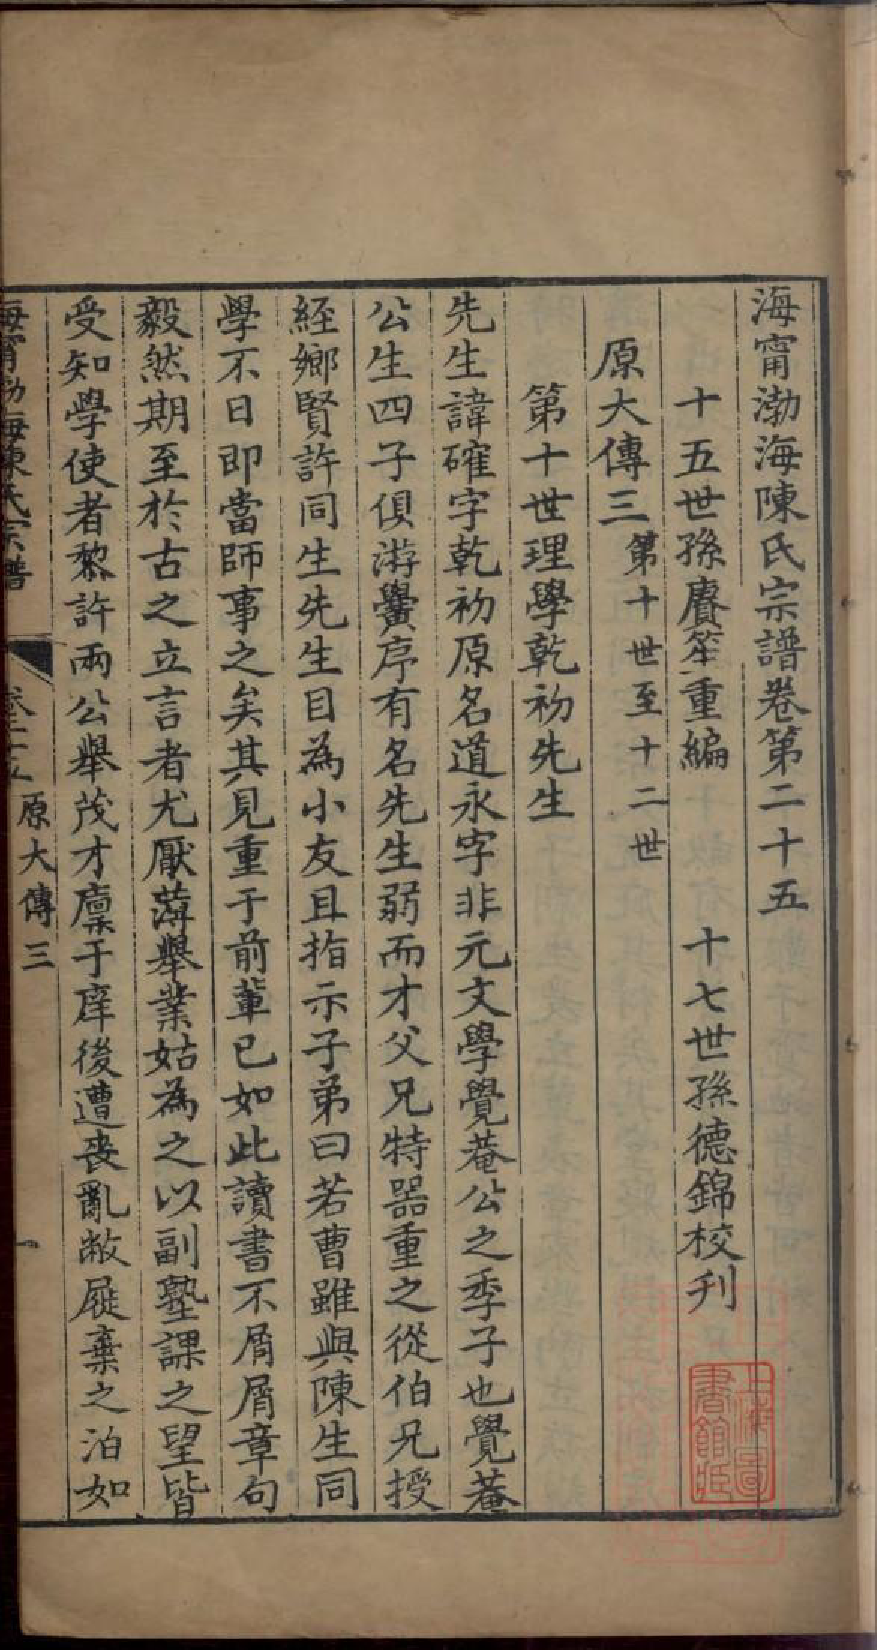 海甯渤海陳氏宗譜卷第二十五
十五世孫賡笙重編 十七世孫德錦校刋
原大傳三 第十世至十二世
第十世理學乾初先生
先生諱確字乾初原名道永字非元文學覺菴公之季子也覺菴
公生四子俱游黌序有名先生弱而才父兄特器重之從伯兄授
經鄉賢許同生先生目為小友且指示子弟曰若曹雖與陳生同
學不日即當師事之矣其見重于前輩已如此讀書不屑屑章句
毅然期至於古之立言者尤厭薄舉業姑為之以副塾課之望皆
受知學使者黎許兩公舉茂才廩于庠後遭喪亂敝屣棄之泊如
海甯渤海陳氏宗譜 卷二十五 原大傳三 一
上海圖書館藏